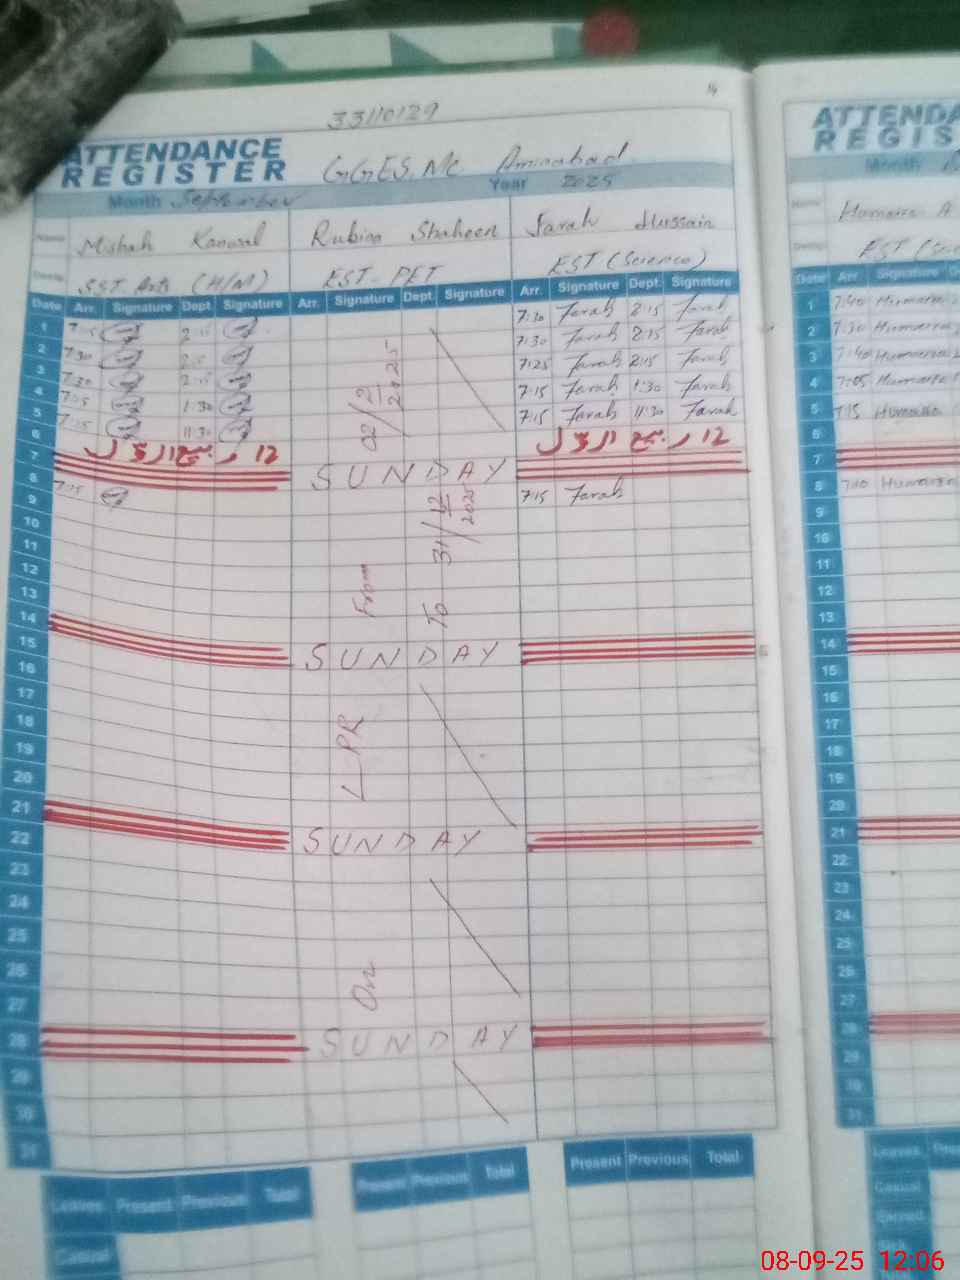 14
33110129
ATTENDANCE REGISTER GGES. MC. Aminabad
Month September Year 2025
Name Misbah Kanwal Rubina Shaheen Farah Hussain
SST Arts (H/M) EST - PET EST (Science)
Date Arr. Signature Dept. Signature Arr. Signature Dept. Signature Arr. Signature Dept. Signature
1 7:15 2:15 7:30 Farah 2:15 Farah
2 7:30 7:30 Farah 2:15 Farah
3 7:30 2:15 7:25 Farah 2:15 Farah
4 7:15 1:30 7:15 Farah 1:30 Farah
5 7:15 11:30 7:15 Farah 11:30 Farah
6 12 ربیع الاول 12 ربیع الاول
7 SUNDAY
8 7:15 7:15 Farah
9
10
11
12
13
14 SUNDAY
15
16
17
18
19
20
21 SUNDAY
22
23
24
25
26
27
28 SUNDAY
29
30
31
On LPR From 02/2/2025
To 31/12/2025
Leaves Present Previous Total Present Previous Total Present Previous Total
Casual
ATTENDA
REGIS
Month
Name Humaira A
EST (Sc
Date Arr. Signature
1 7:40 Humaira
2 7:30 Humaira
3 7:40 Humaira
4 7:05 Humaira
5 7:15 Humaira
6
7
8 7:00 Humaira
9
10
11
12
13
14
15
16
17
18
19
20
21
22
23
24
25
26
27
28
29
30
31
Leaves Pres
Casual
Earned
Sick
08-09-25 12:06